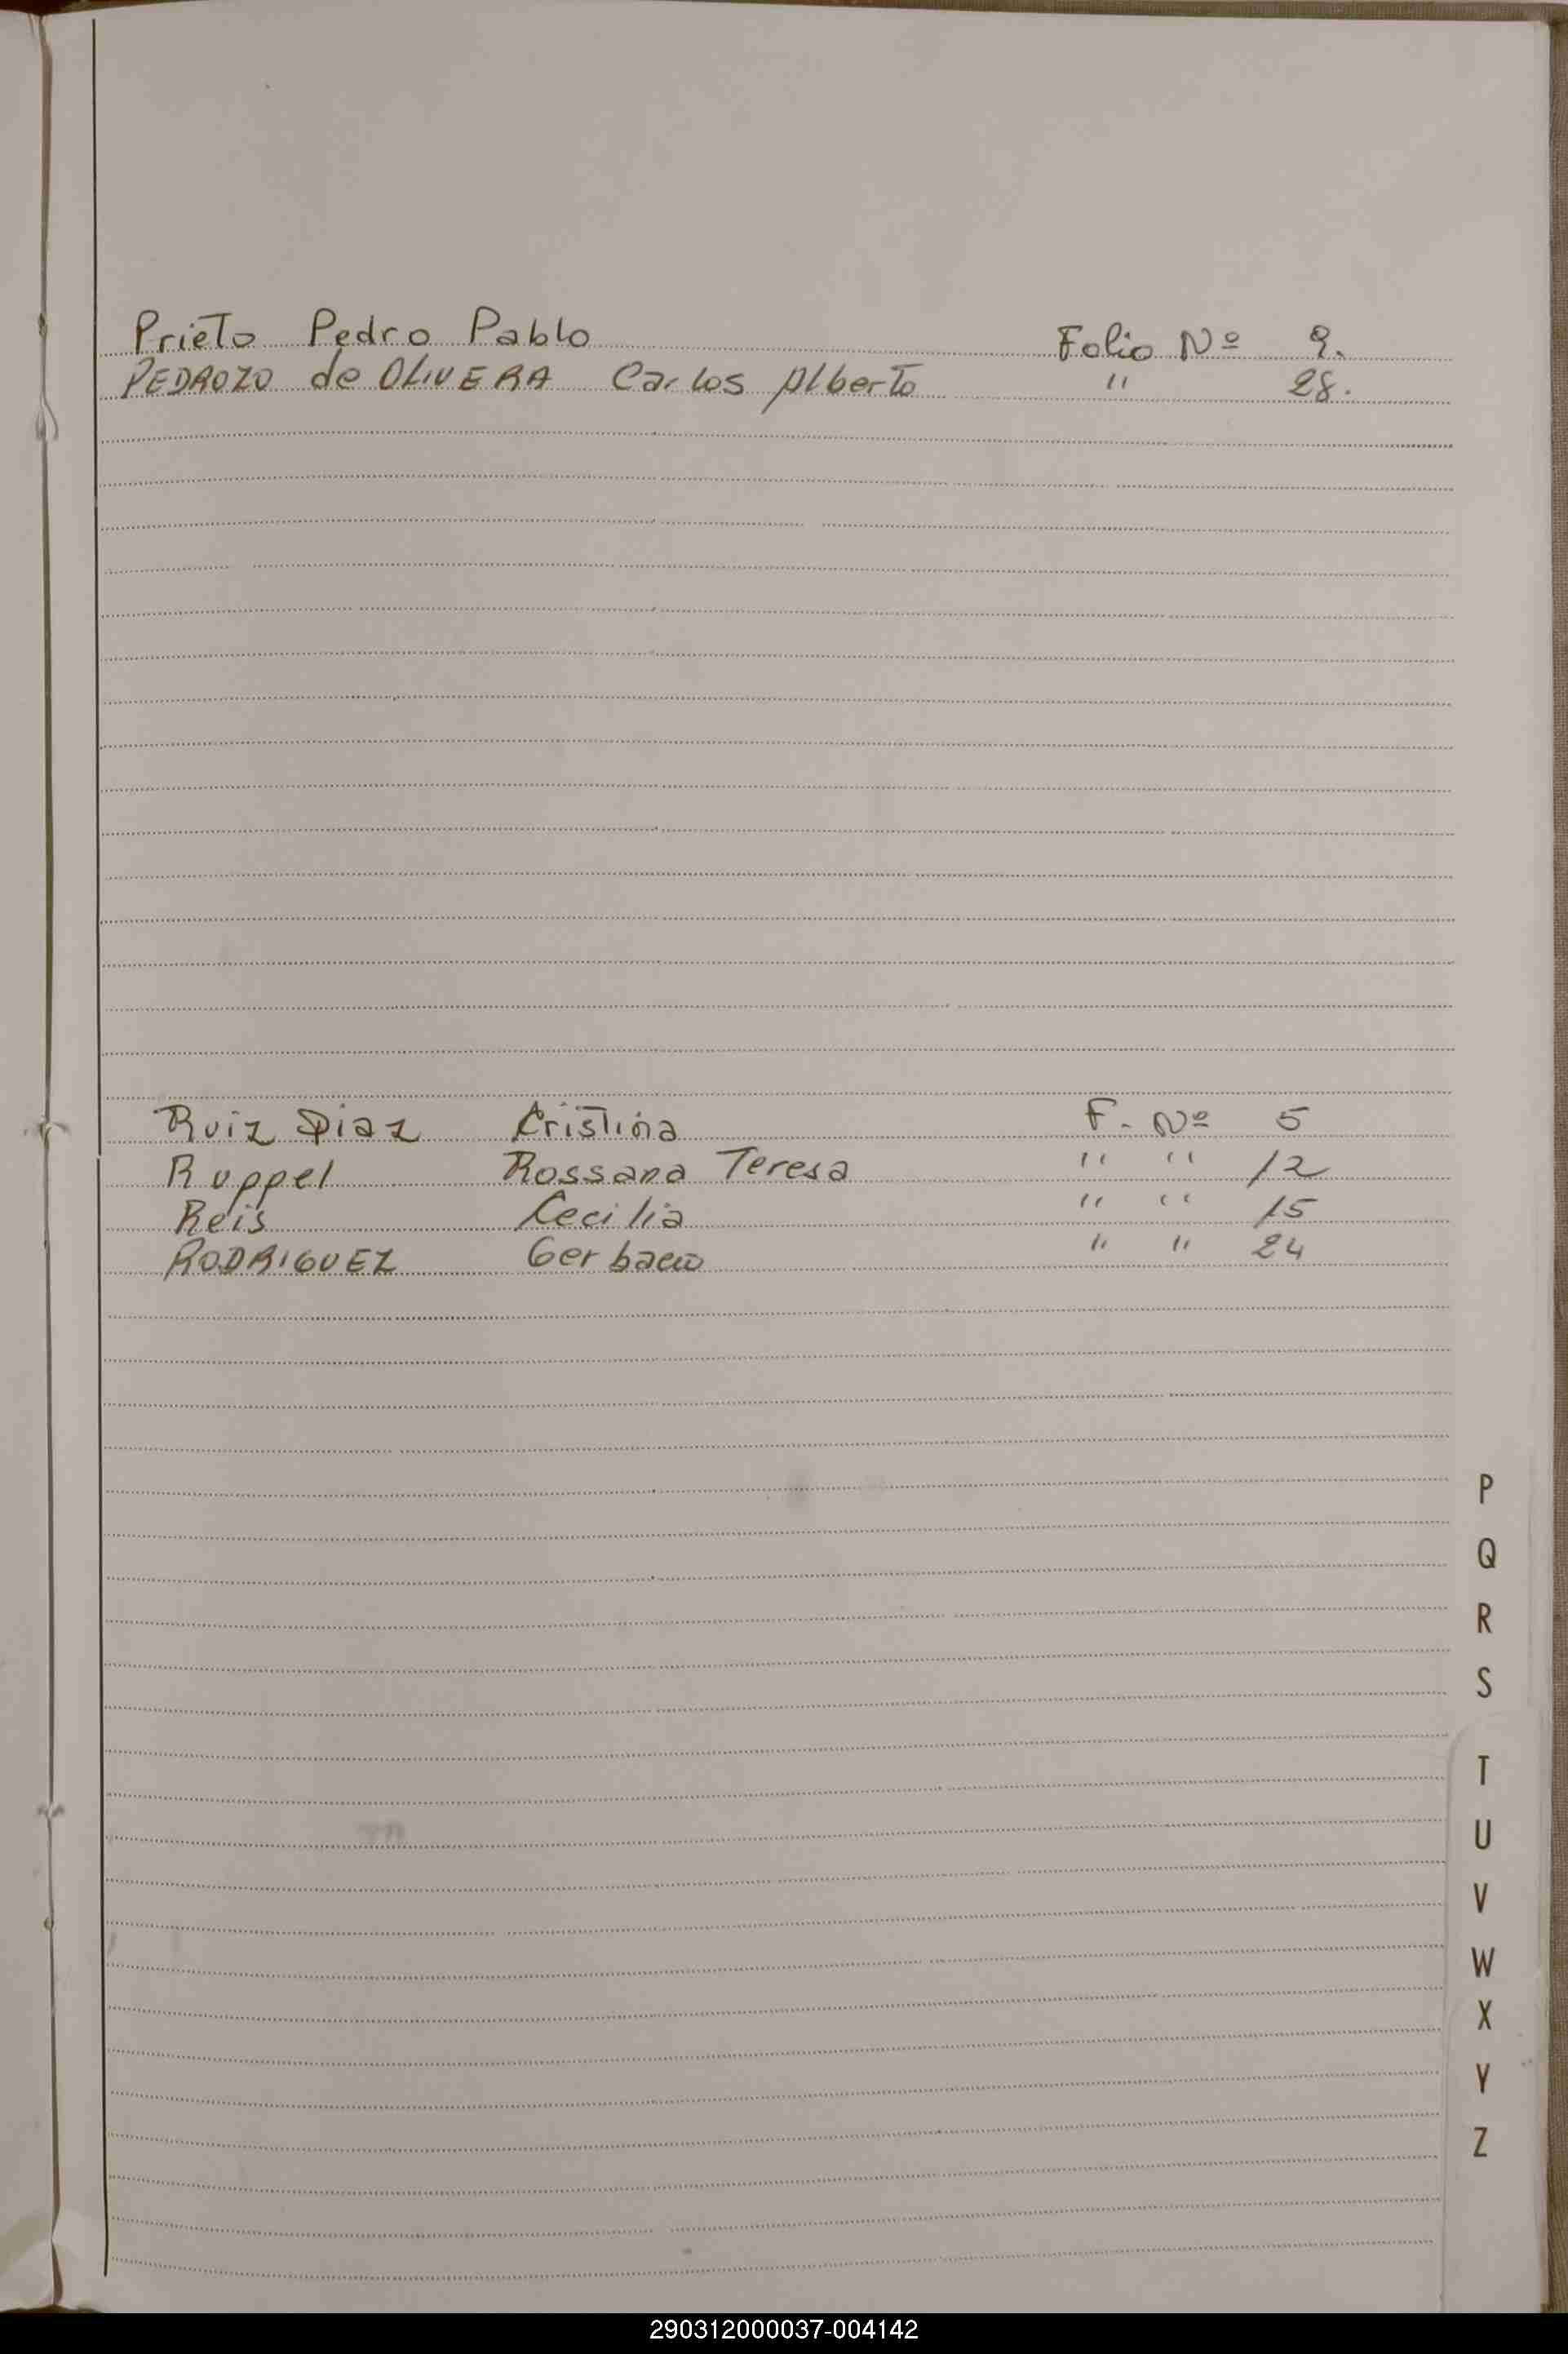 Prieto Pedro Pablo Folio Nº 9.
PEDROZO de OLIVERA Carlos Alberto " 28.
Ruiz Diaz Cristina F. Nº 5
Ruppel Rossana Teresa " " 12
Reis Cecilia " " 15
RODRIGUEZ " " 24
P
Q
R
S
T
U
V
W
X
Y
Z
290312000037-004142